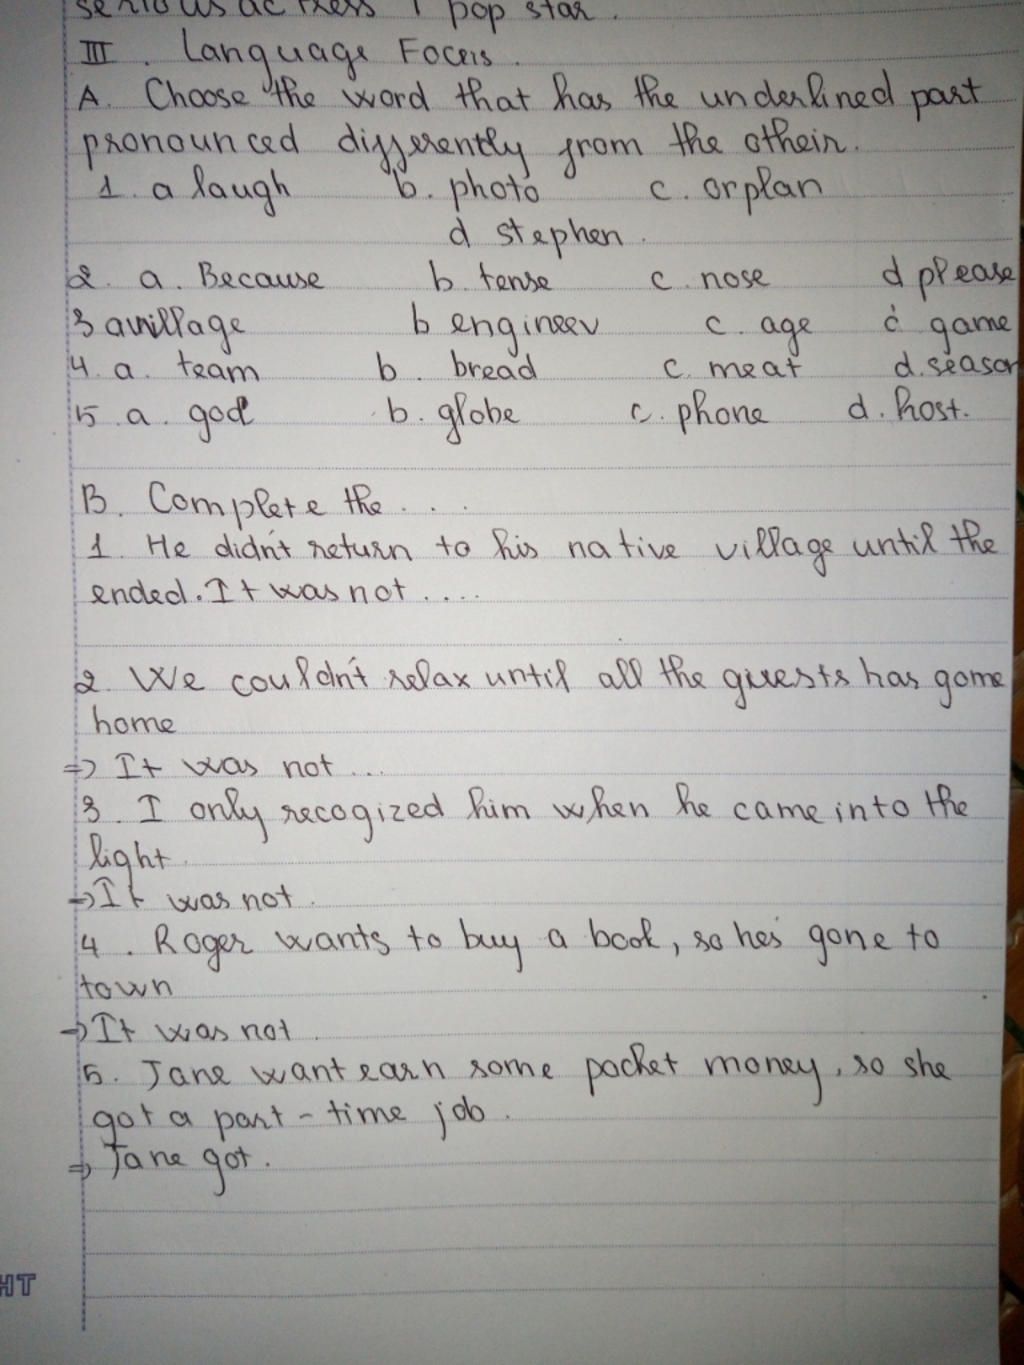 serious actress / pop star.
III. Language Focus.
A. Choose the word that has the underlined part
pronounced differently from the otheir.
1. a laugh b. photo c. orplan
d stephen.
2. a. Because b. tense c. nose d please
3 a village b engineer c. age c game
4. a. team b. bread c. meat d. season
5 a. god b. globe c. phone d. host.
B. Complete the ...
1. He didn't return to his native village until the
ended. It was not ....
2. We couldn't relax until all the guests has gome
home
=> It was not ...
3. I only recogized him when he came into the
light.
=> It was not.
4. Roger wants to buy a book, so he's gone to
town
=> It was not.
5. Jane want earn some pocket money, so she
got a part - time job.
=> Jane got.
HT